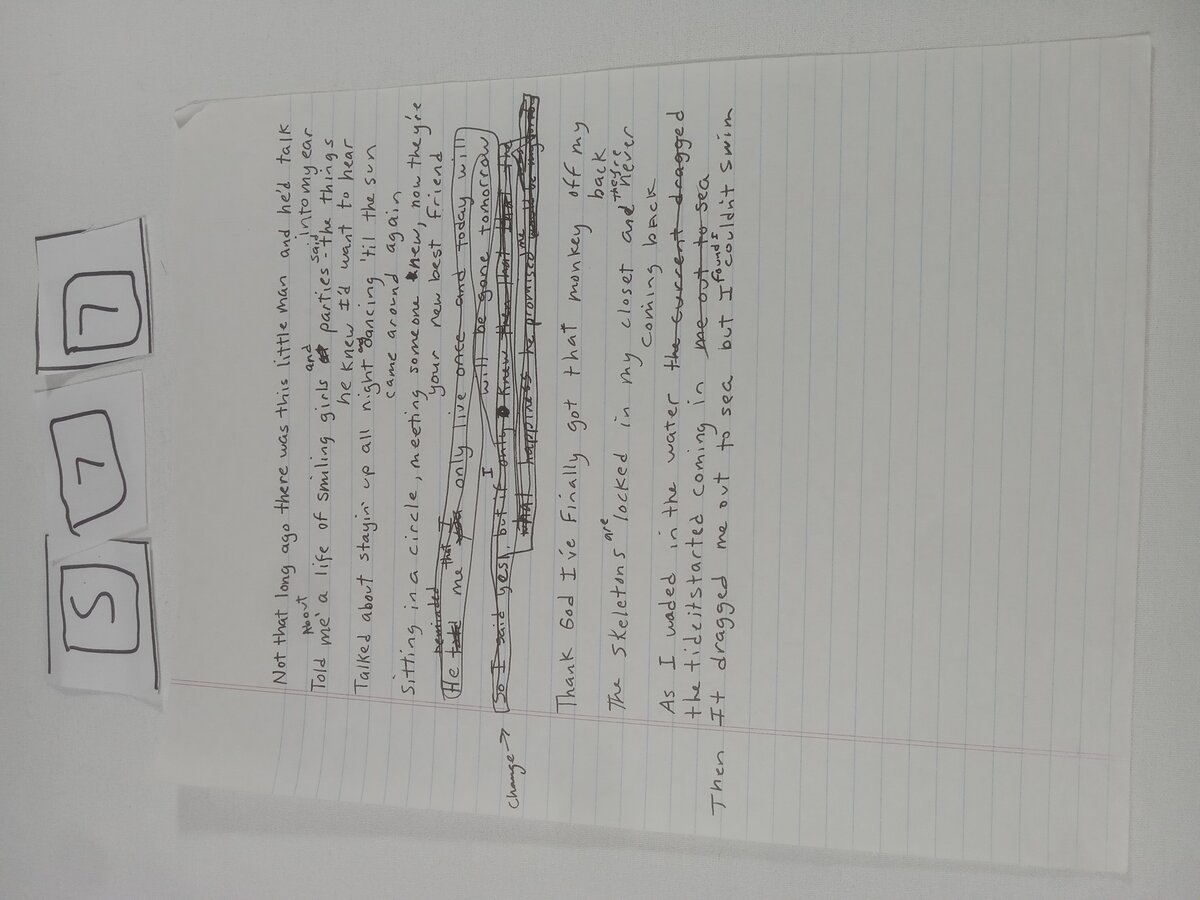 5 7 7
Not that long ago there was this little man and he'd talk
into my ear
Told me About a life of smiling girls and parties - said the things
he knew I'd want to hear
Talked about stayin' up all night and dancing 'til the sun
came around again
Sitting in a circle, meeting someone new, now they're
your new best friend
He told reminded me that you I only live once and today will
will be gone tomorrow
change → So I said yes, but if only I knew then that that the
that happiness he promised me would be my
Thank God I've finally got that monkey off my
back
The skeletons are locked in my closet and they're never
coming back
As I waded in the water the current dragged
the tide it started coming in me out to sea
Then It dragged me out to sea but I found I couldn't swim